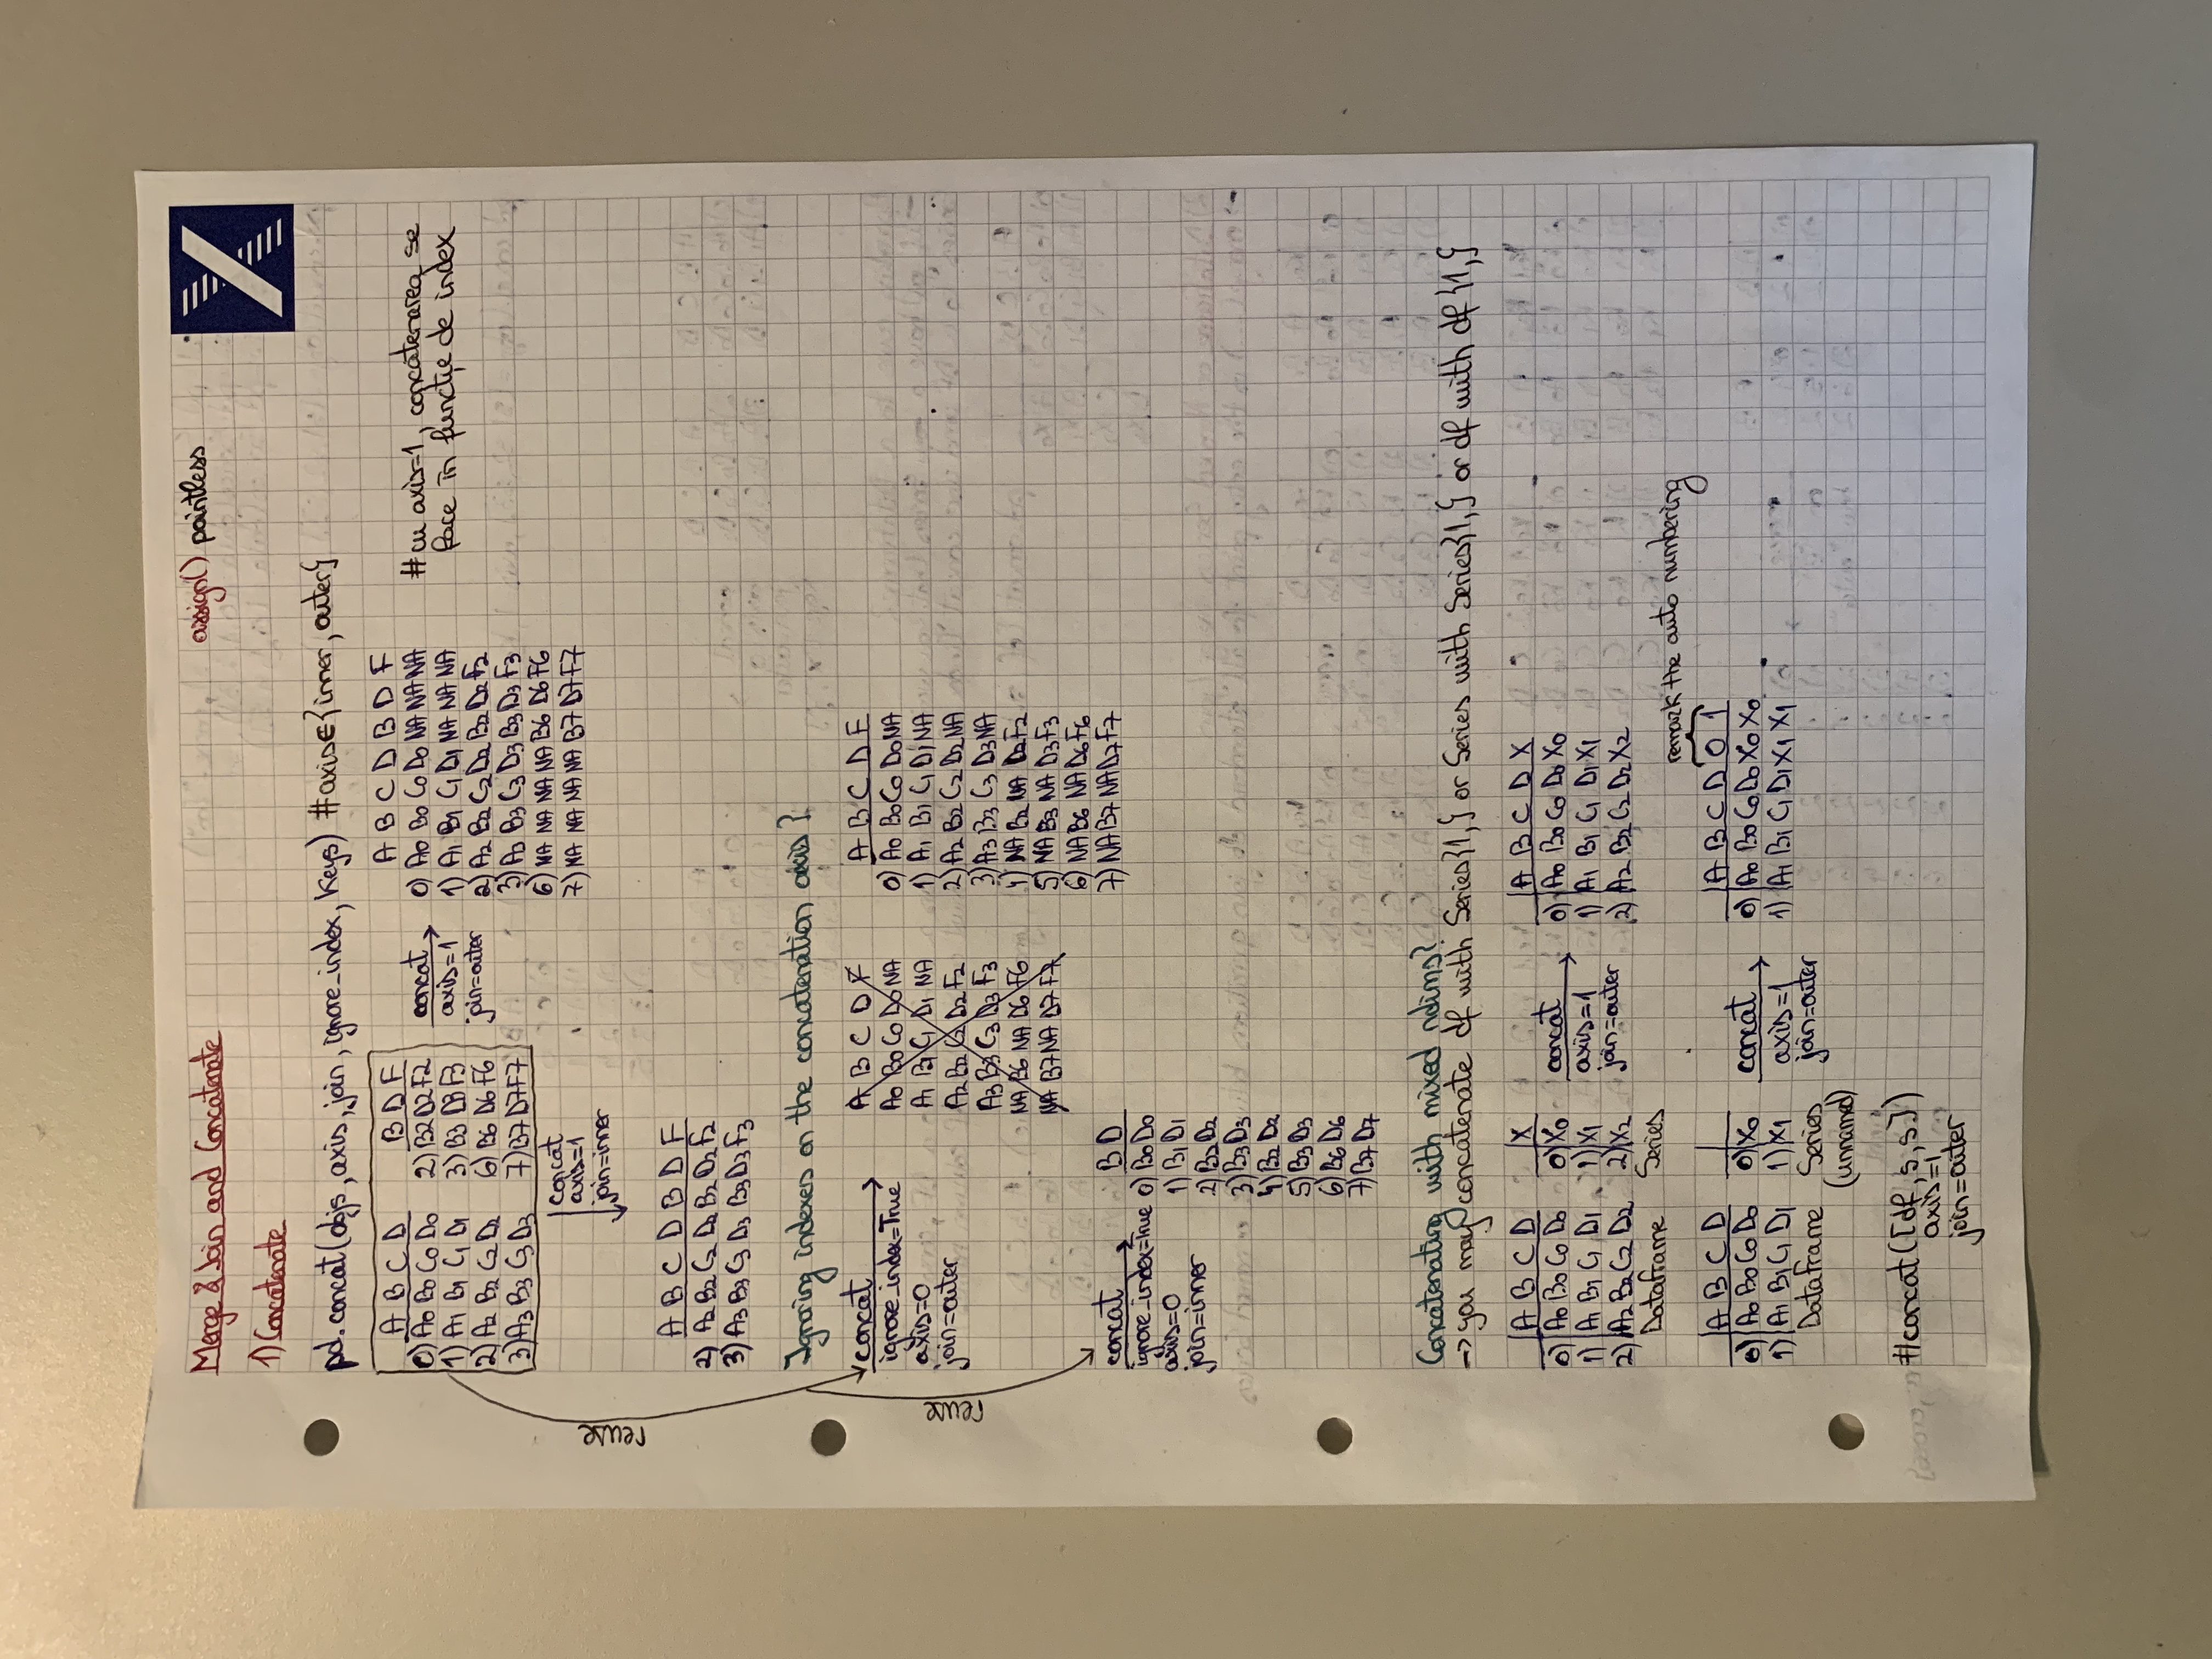 Merge & Join and Concatenate
assign() pointless
1) Concatenate
pd.concat(objs, axis, join, ignore_index, keys) #axis∈{inner, outer}
A B C D
0) A0 B0 C0 D0
1) A1 B1 C1 D1
2) A2 B2 C2 D2
3) A3 B3 C3 D3
B D F
2) B2 D2 F2
3) B3 D3 F3
6) B6 D6 F6
7) B7 D7 F7
concat
axis=1
join=outer
A B C D B D F
0) A0 B0 C0 D0 NA NA NA
1) A1 B1 C1 D1 NA NA NA
2) A2 B2 C2 D2 B2 D2 F2
3) A3 B3 C3 D3 B3 D3 F3
6) NA NA NA NA B6 D6 F6
7) NA NA NA NA B7 D7 F7
#cu axis=1, concatenarea se
face in funcție de index
concat
axis=1
join=inner
A B C D B D F
2) A2 B2 C2 D2 B2 D2 F2
3) A3 B3 C3 D3 B3 D3 F3
reuse
Ignoring indexes on the concatenation axis?
concat
ignore_index=True
axis=0
join=outer
A B C D F
A0 B0 C0 D0 NA
A1 B1 C1 D1 NA
A2 B2 C2 D2 F2
A3 B3 C3 D3 F3
NA B6 NA D6 F6
NA B7 NA D7 F7
A B C D F
0) A0 B0 C0 D0 NA
1) A1 B1 C1 D1 NA
2) A2 B2 C2 D2 NA
3) A3 B3 C3 D3 NA
4) NA B2 NA D2 F2
5) NA B3 NA D3 F3
6) NA B6 NA D6 F6
7) NA B7 NA D7 F7
reuse
concat
ignore_index=True
axis=0
join=inner
B D
0) B0 D0
1) B1 D1
2) B2 D2
3) B3 D3
4) B2 D2
5) B3 D3
6) B6 D6
7) B7 D7
Concatenating with mixed ndims?
-> you may concatenate df with Series{1,} or Series with Series{1,} or df with df{1,}
A B C D
0) A0 B0 C0 D0
1) A1 B1 C1 D1
2) A2 B2 C2 D2
DataFrame
X
0) X0
1) X1
2) X2
Series
concat
axis=1
join=outer
A B C D X
0) A0 B0 C0 D0 X0
1) A1 B1 C1 D1 X1
2) A2 B2 C2 D2 X2
remark the auto numbering
A B C D
0) A0 B0 C0 D0
1) A1 B1 C1 D1
DataFrame
0) X0
1) X1
Series
(unnamed)
concat
axis=1
join=outer
A B C D 0 1
0) A0 B0 C0 D0 X0 X0
1) A1 B1 C1 D1 X1 X1
#concat([df, s, s])
axis=1
join=outer